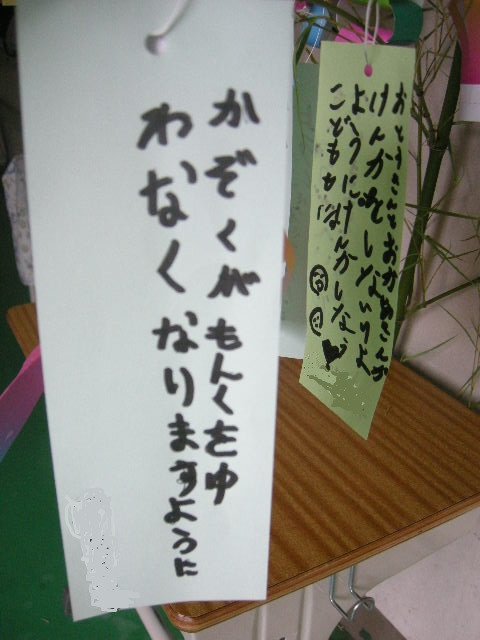 かぞくがもんくをゆ
わなくなりますように
おとうさんとおかあさんが
けんかをしないりよ
ように
こどもが けんかしな